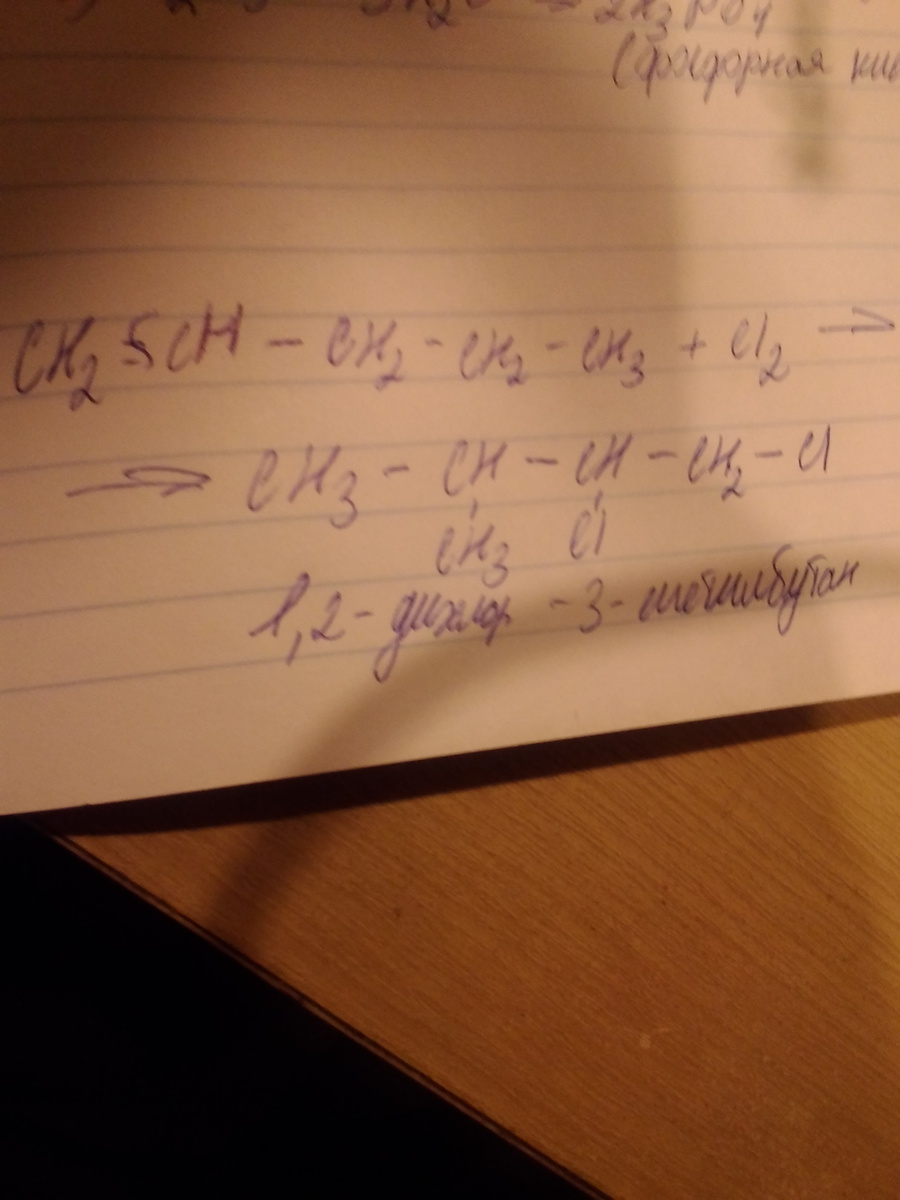 2H₃PO₄
(фосфорная
CH₂=CH – CH₂ – CH₂ – CH₃ + Cl₂ →
→ CH₃ – CH – CH – CH₂ – Cl
CH₃ Cl
1,2-дихлор-3-метилбутан